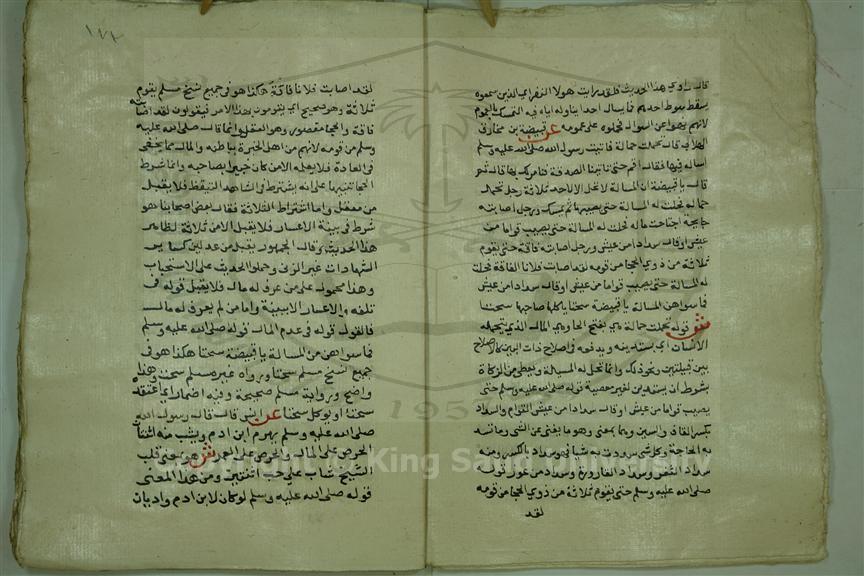 قال راوي هذا الحديث فلقد رايت هولا النفر اي الذين سمعوه
يسقط سوط احدهم فما يسال احدا يناوله اياه فيه التمسك بالعموم
لانهم نهوا عن السوال فحملوه على عمومه عن قبيصة بن مخارق
الهلالي قال تحملت حمالة فاتيت رسول الله صلى الله عليه وسلم
اساله فيها فقال اقم حتى تاتينا الصدقة فنامر لك بها قال ثم
قال يا قبيصة ان المسالة لا تحل الا لاحد ثلاثة رجل تحمل
حمالة فحلت له المسالة حتى يصيبها ثم يمسك ورجل اصابته
جايحة اجتاحت ماله فحلت له المسالة حتى يصيب قواما من
عيش او قال سدادا من عيش ورجل اصابته فاقة حتى يقوم
ثلاثة من ذوي الحجا من قومه لقد اصابت فلانا الفاقة فحلت
له المسالة حتى يصيب قواما من عيش او قال سدادا من عيش
فما سواهن المسالة يا قبيصة سحتا ياكلها صاحبها سحتا
ش قوله تحملت حمالة هي بفتح الحا وهي المال الذي يتحمله
الانسان اي يستدينه ويدفعه في اصلاح ذات البين كالاصلاح
بين قبيلتين ونحو ذلك وانما تحل له المسالة ويعطى من الزكاة
بشرط ان يستدين لغير معصية قوله صلى الله عليه وسلم حتى
يصيب قواما من عيش او قال سدادا من عيش القوام والسداد
بكسر القاف والسين وهما بمعنى وهو ما يغني عن الشي وما تسد
به الحاجة وكل شي سددت به شيا فهو سداد بالكسر ومنه
سداد الثغر وسداد القارورة وسداد من عوز قوله
صلى الله عليه وسلم حتى يقوم ثلاثة من ذوي الحجا من قومه
لقد
١٧٢
لقد اصابت فلانا فاقة هكذا هو في جميع نسخ مسلم يقوم
ثلاثة وهو صحيح اي يقومون بهذا الامر فيقولون لقد اصابته
فاقة والحجا مقصور وهو العقل وانما قال صلى الله عليه
وسلم من قومه لانهم من اهل الخبرة بباطنه والمال مما يخفى
في العادة فلا يعلمه الا من كان خبيرا بصاحبه وانما شرط
الحجا تنبيها على انه يشترط في الشاهد التيقظ فلا يقبل
من مغفل واما اشتراط الثلاثة فقال بعض اصحابنا هو
شرط في بينة الاعسار فلا يقبل الا من ثلاثة لظاهر
هذا الحديث وقال الجمهور يقبل من عدلين كساير
الشهادات غير الزنى وحملوا الحديث على الاستحباب
وهذا محمول على من عرف له مال فلا يقبل قوله في
تلفه والاعسار الا ببينة واما من لم يعرف له مال
فالقول قوله في عدم المال قوله صلى الله عليه وسلم
فما سواهن من المسالة يا قبيصة سحتا هكذا هو في
جميع نسخ مسلم سحتا ورواه غير مسلم سحت وهذا
واضح ورواية مسلم صحيحة وفيه اضمار اي اعتقده
سحتا او يوكل سحتا عن انس قال قال رسول الله
صلى الله عليه وسلم يهرم ابن ادم ويشب منه اثنتان
الحرص على المال والحرص على العمر ش هو بمعنى قلب
الشيخ شاب على حب اثنتين ومن هذا المعنى
قوله صلى الله عليه وسلم لو كان لابن ادم واديان